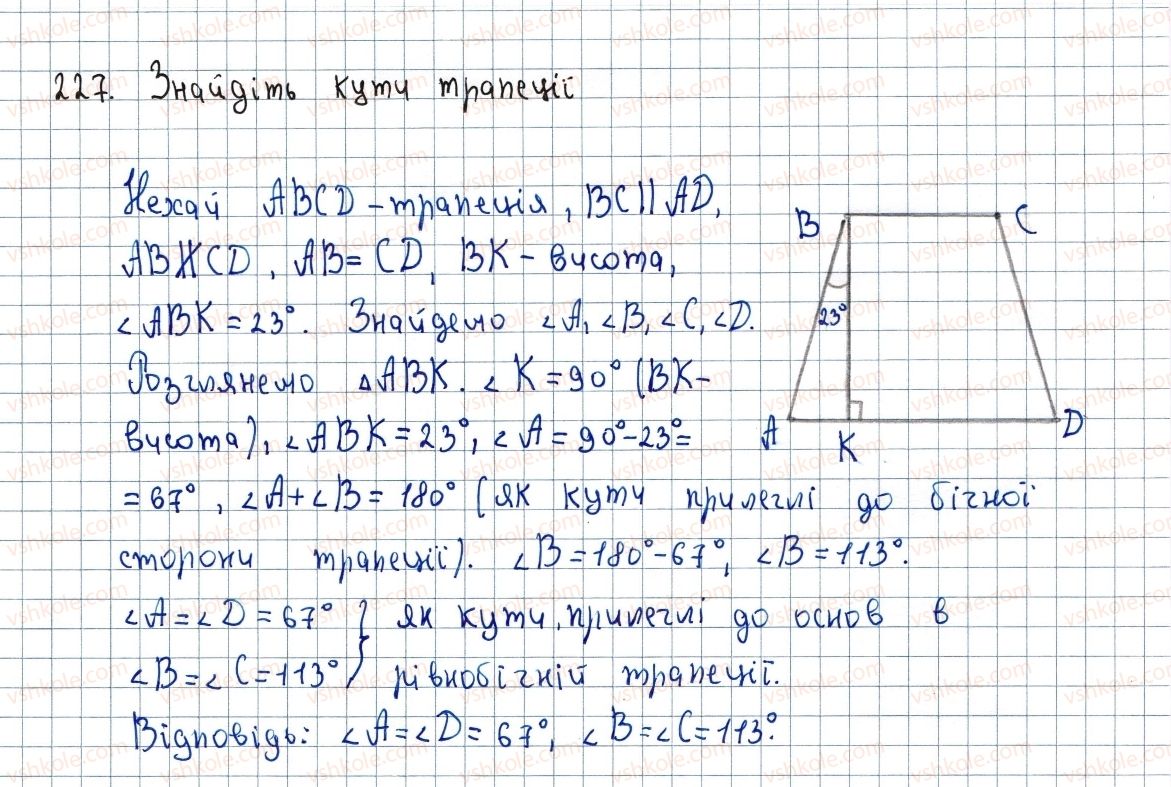 227. Знайдіть кути трапеції
Нехай ABCD – трапеція, BC || AD,
AB ∦ CD, AB = CD, BK – висота,
∠ABK = 23°. Знайдемо ∠A, ∠B, ∠C, ∠D.
Розглянемо ΔABK. ∠K = 90° (BK –
висота), ∠ABK = 23°, ∠A = 90° – 23° =
= 67°, ∠A + ∠B = 180° (як кути прилеглі до бічної
сторони трапеції). ∠B = 180° – 67°, ∠B = 113°.
∠A = ∠D = 67° } як кути, прилеглі до основ в
∠B = ∠C = 113° } рівнобічній трапеції.
Відповідь: ∠A = ∠D = 67°, ∠B = ∠C = 113°.
B
C
23°
A
K
D
vshkole.com